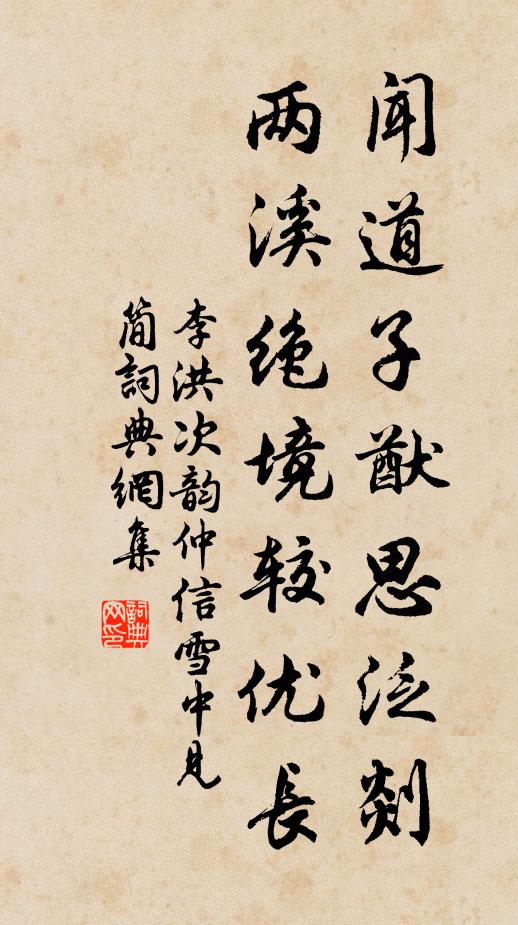 闻道子猷思泛剡
两溪绝境较优長
李洪次韵仲信雪中見
简詞典網集
詞典网印